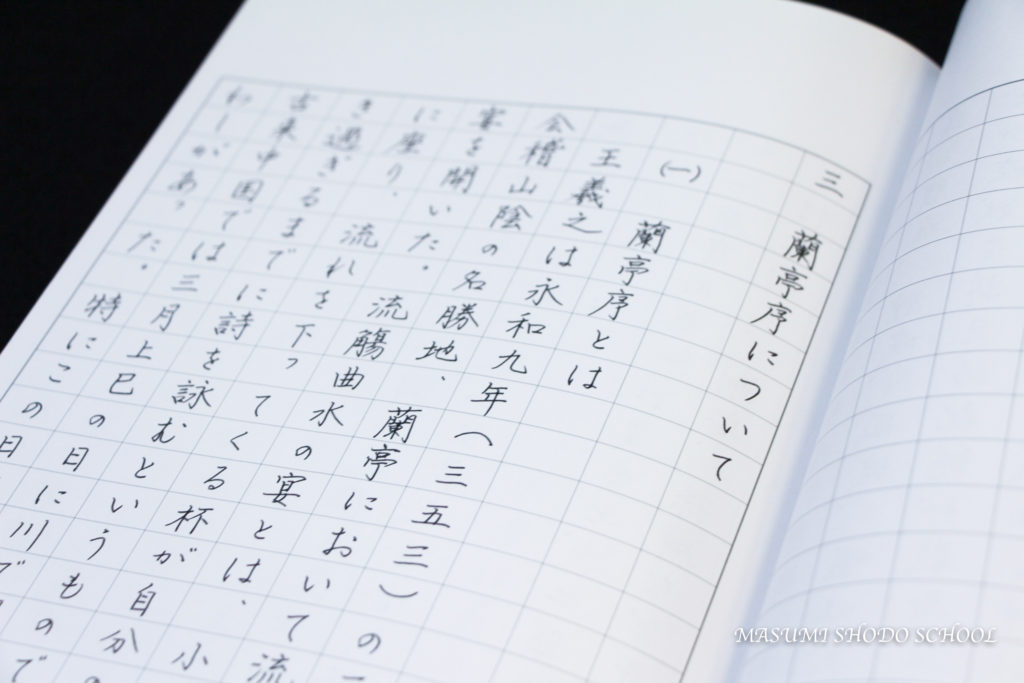 三 蘭亭序について
(一) 蘭亭序とは
王義之は永和九年(三五三)の
会稽山陰の名勝地、蘭亭において流
宴を開いた。流觴曲水の宴とは、小
に座り、流れを下ってくる杯が自分の
き過ぎるまでに詩を詠むというもので
古来中国では三月上巳の日に川で
わしがあった。特にこの日
MASUMI SHODO SCHOOL